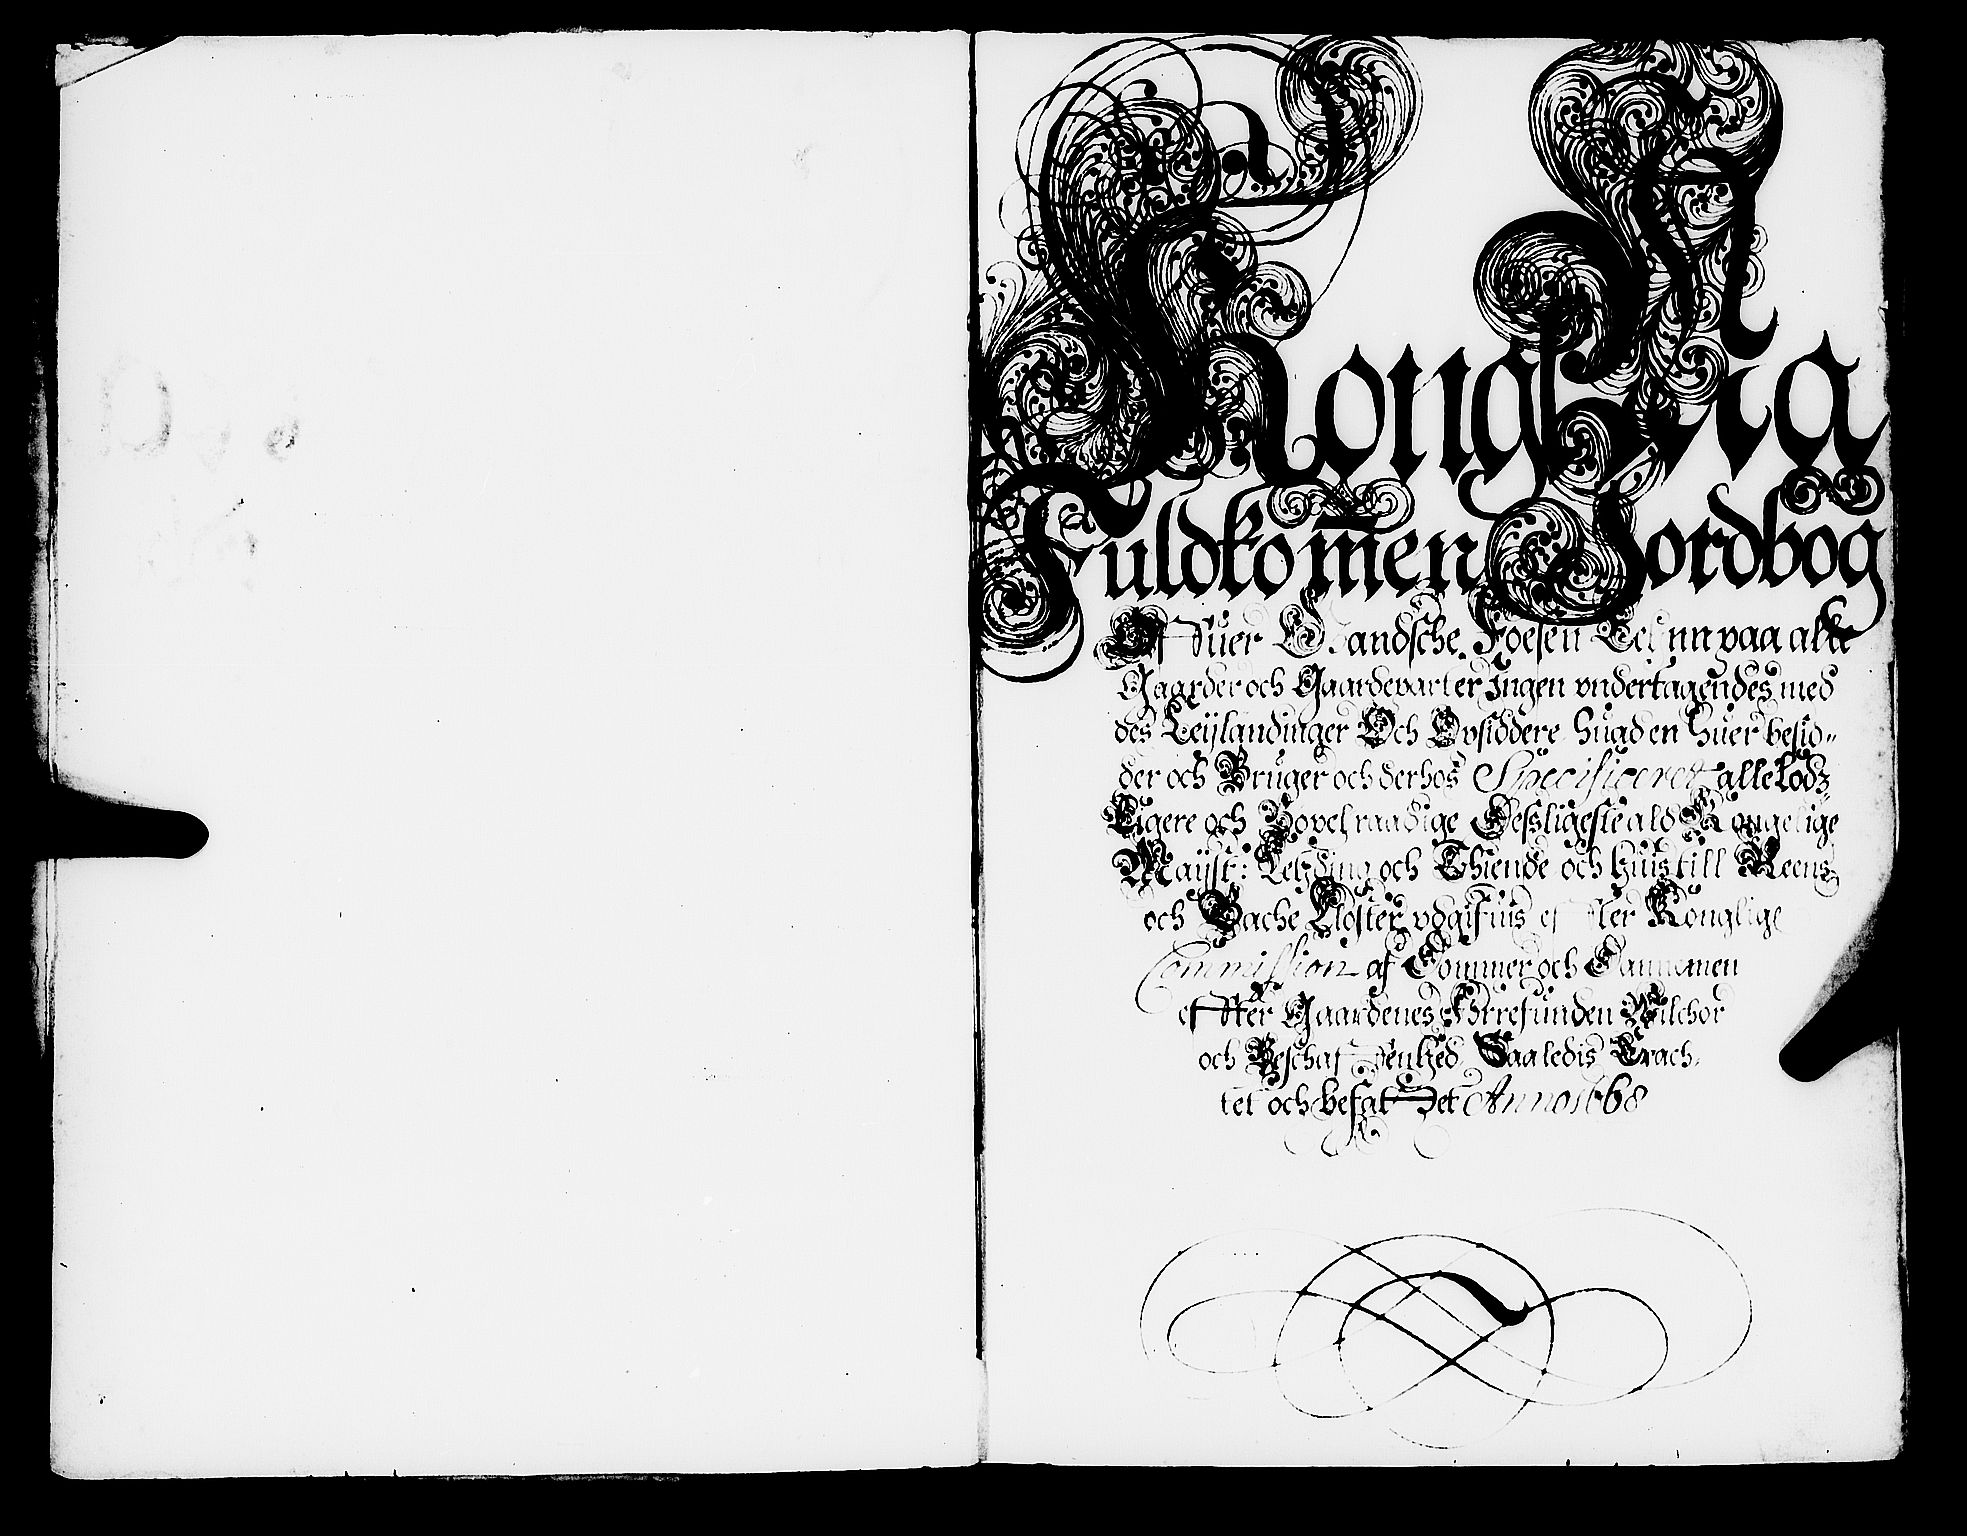 Kongß Ma
Fuldkom̅en Jordbog
Offuer Foesen paa alle
Gaarder och Gaardeparter Ingen vndertagendes med
des Leijlandinger Och Opsiddere huad en huer besid=
der och Bruger och derhos Specificeret alle Lodz
Eigere och Bøxelraadige Desligeste ald Kongelige
Mayst: Leding och Thiende och huis till Reens
och Bache Closter vdgifuis effter Konglige
Commission af Commer och
effter Gaardenes Forrefunden Wilchor
och Beschaffenhed Saaledis Trach
tet och befattet Anno 1668